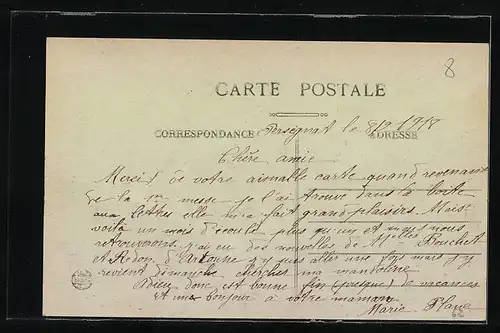 8
CARTE POSTALE
CORRESPONDANCE Perseignat le 8/9 1918 ADRESSE
Chère amie
Merci! de votre aimable carte quand revenant
de la 1re messe je l'ai trouvé dans la boîte
aux lettres elle m'a fait grand plaisirs. Mais
voilà un mois d'écoulé plus qu'un et nous nous
retrouverons. j'ai eu des nouvelles de Mlles Bouchet
et Redon, d'Artonne j'y suis allée une fois mais j'y
revient dimanche chercher ma mandoline
donc est bonne fin (presque) de vacances
et un bonjour à votre maman
Marie